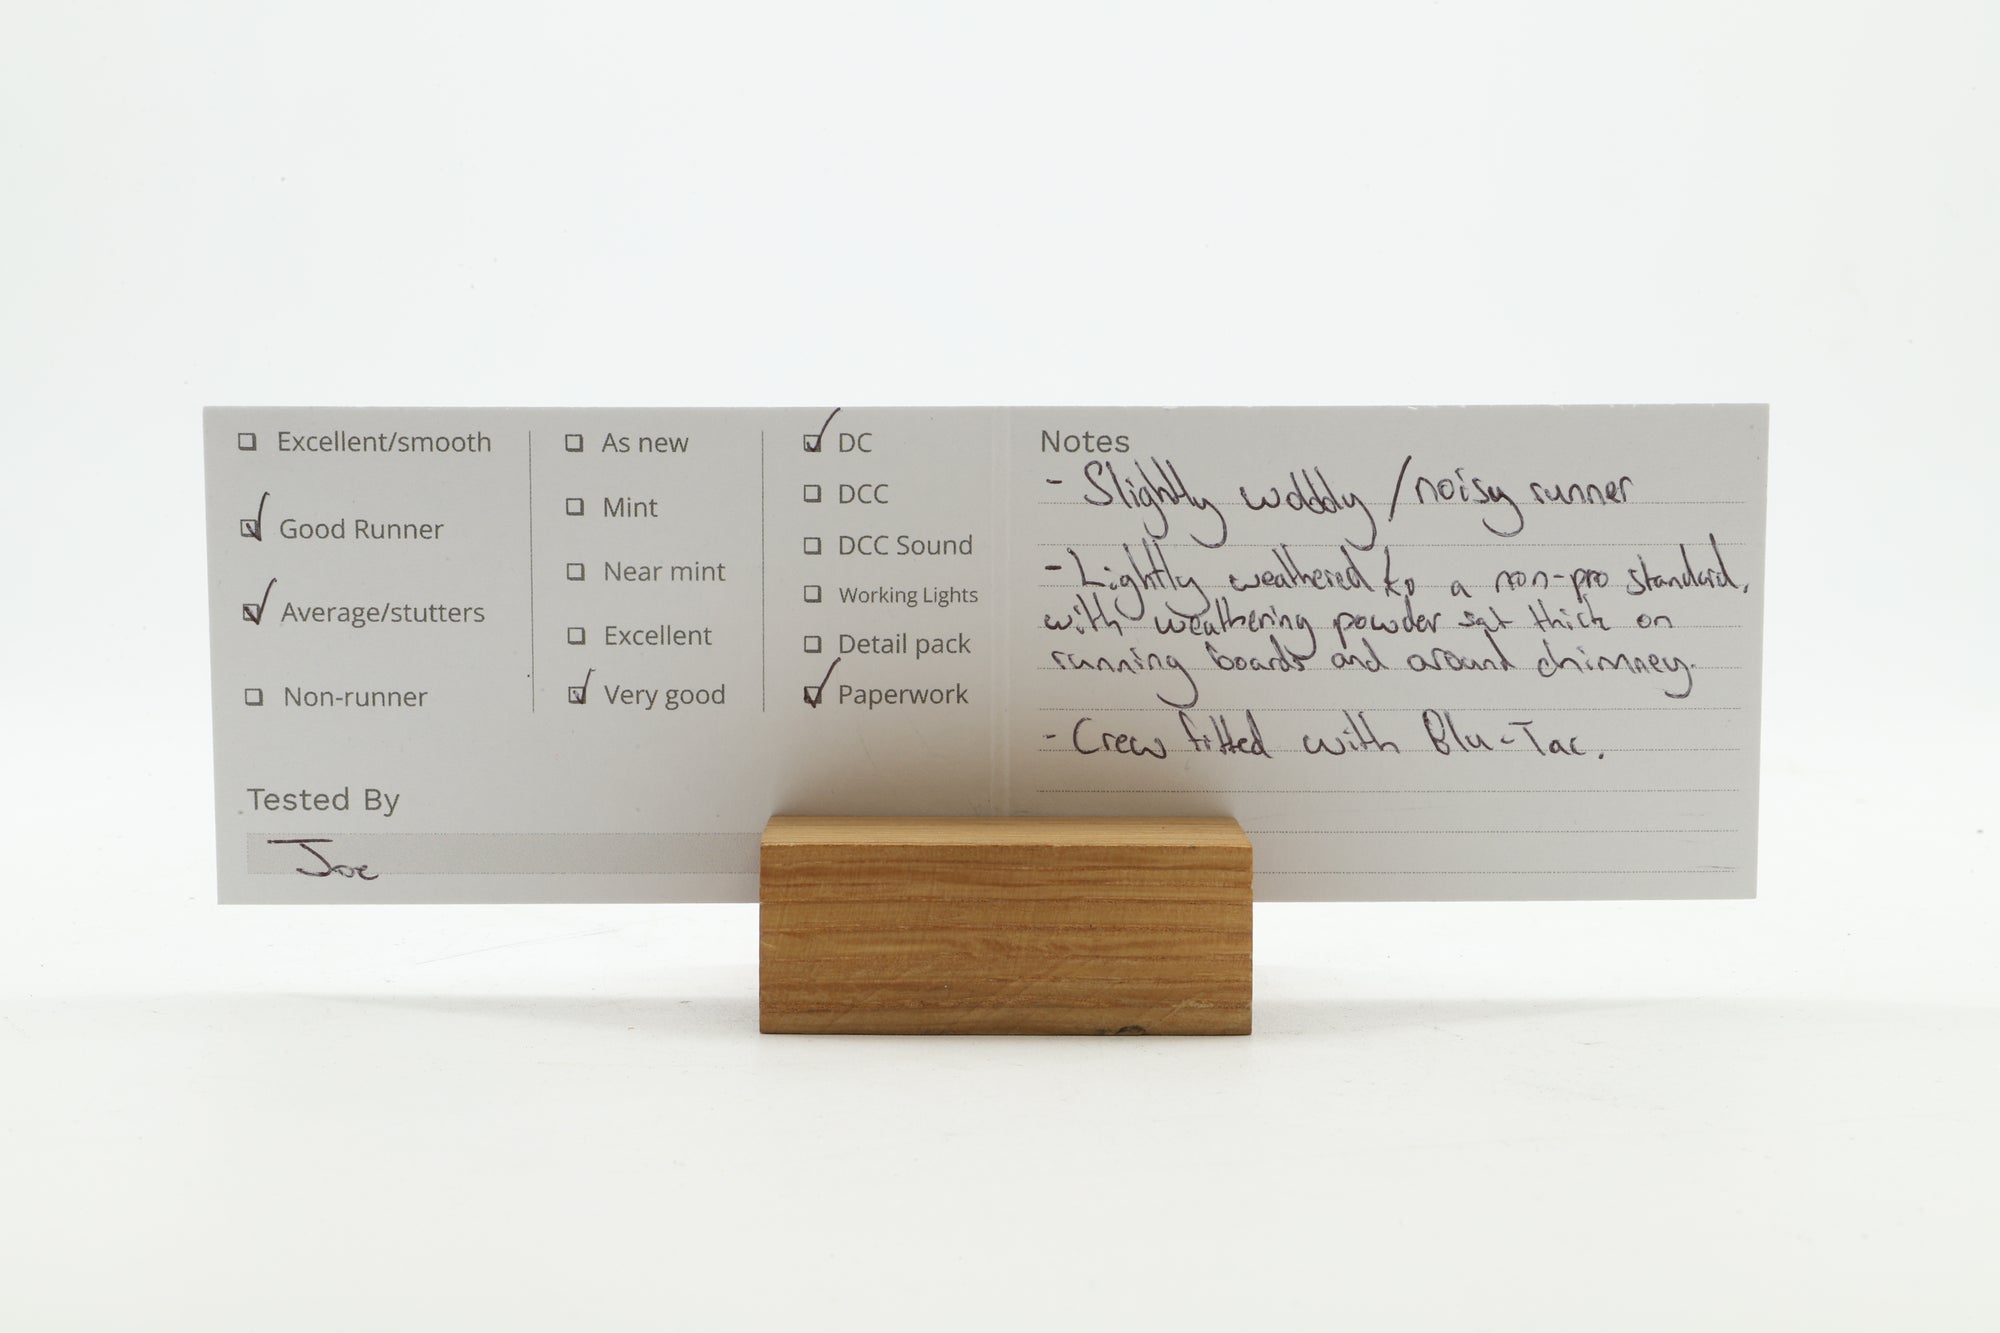 Excellent/smooth
Good Runner
Average/stutters
Non-runner
As new
Mint
Near mint
Excellent
Very good
DC
DCC
DCC Sound
Working Lights
Detail pack
Paperwork
Tested By
Joe
Notes
- Slightly wobbly / noisy runner
- Lightly weathered to a non-pro standard,
with weathering powder sat thick on
running boards and around chimney.
- Crew fitted with Blu-Tac.